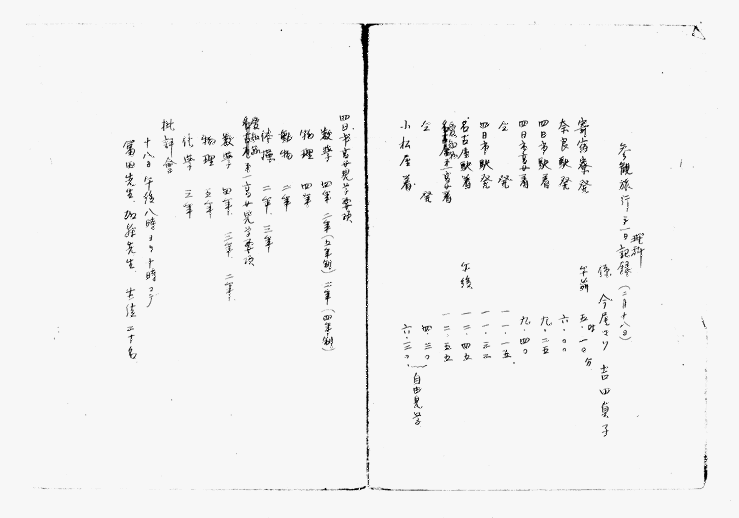 参観旅行第一日記録(二月十八日)
理科
係 今尾さり 吉田貞子
寄宿寮発 午前 五時一〇分
奈良駅発 六・〇〇
四日市駅着 九・二五
四日市高女着 九・四〇
仝 発 一一・一五
四日市駅発 一一・三三
名古屋駅着 午後 一二・四五
愛知第一高女着 一二・五五
仝 発 四・三〇
小松屋着 六・三〇
自由見学
四日市高女見学要項
数学 四年 二年(五年制) 二年(四年制)
物理 四年
動物 二年
体操 二年 三年
愛知第一高女見学要項
数学 四年 三年 二年
物理 五年
化学 三年
批評会
十八日午後八時ヨリ十時マデ
富田先生 加藤先生 生徒二十名